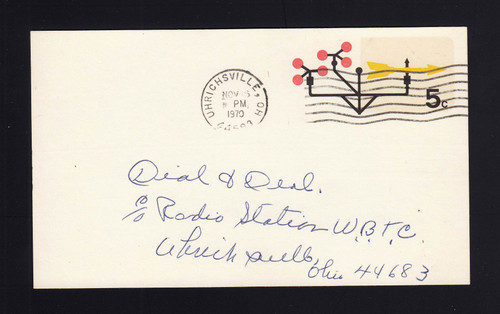 UHRICHSVILLE, OH
NOV
PM
1970
5c
Dial & Deal.
c/o Radio Station W.B.T.C.
Uhrichsville,
Ohio 44683